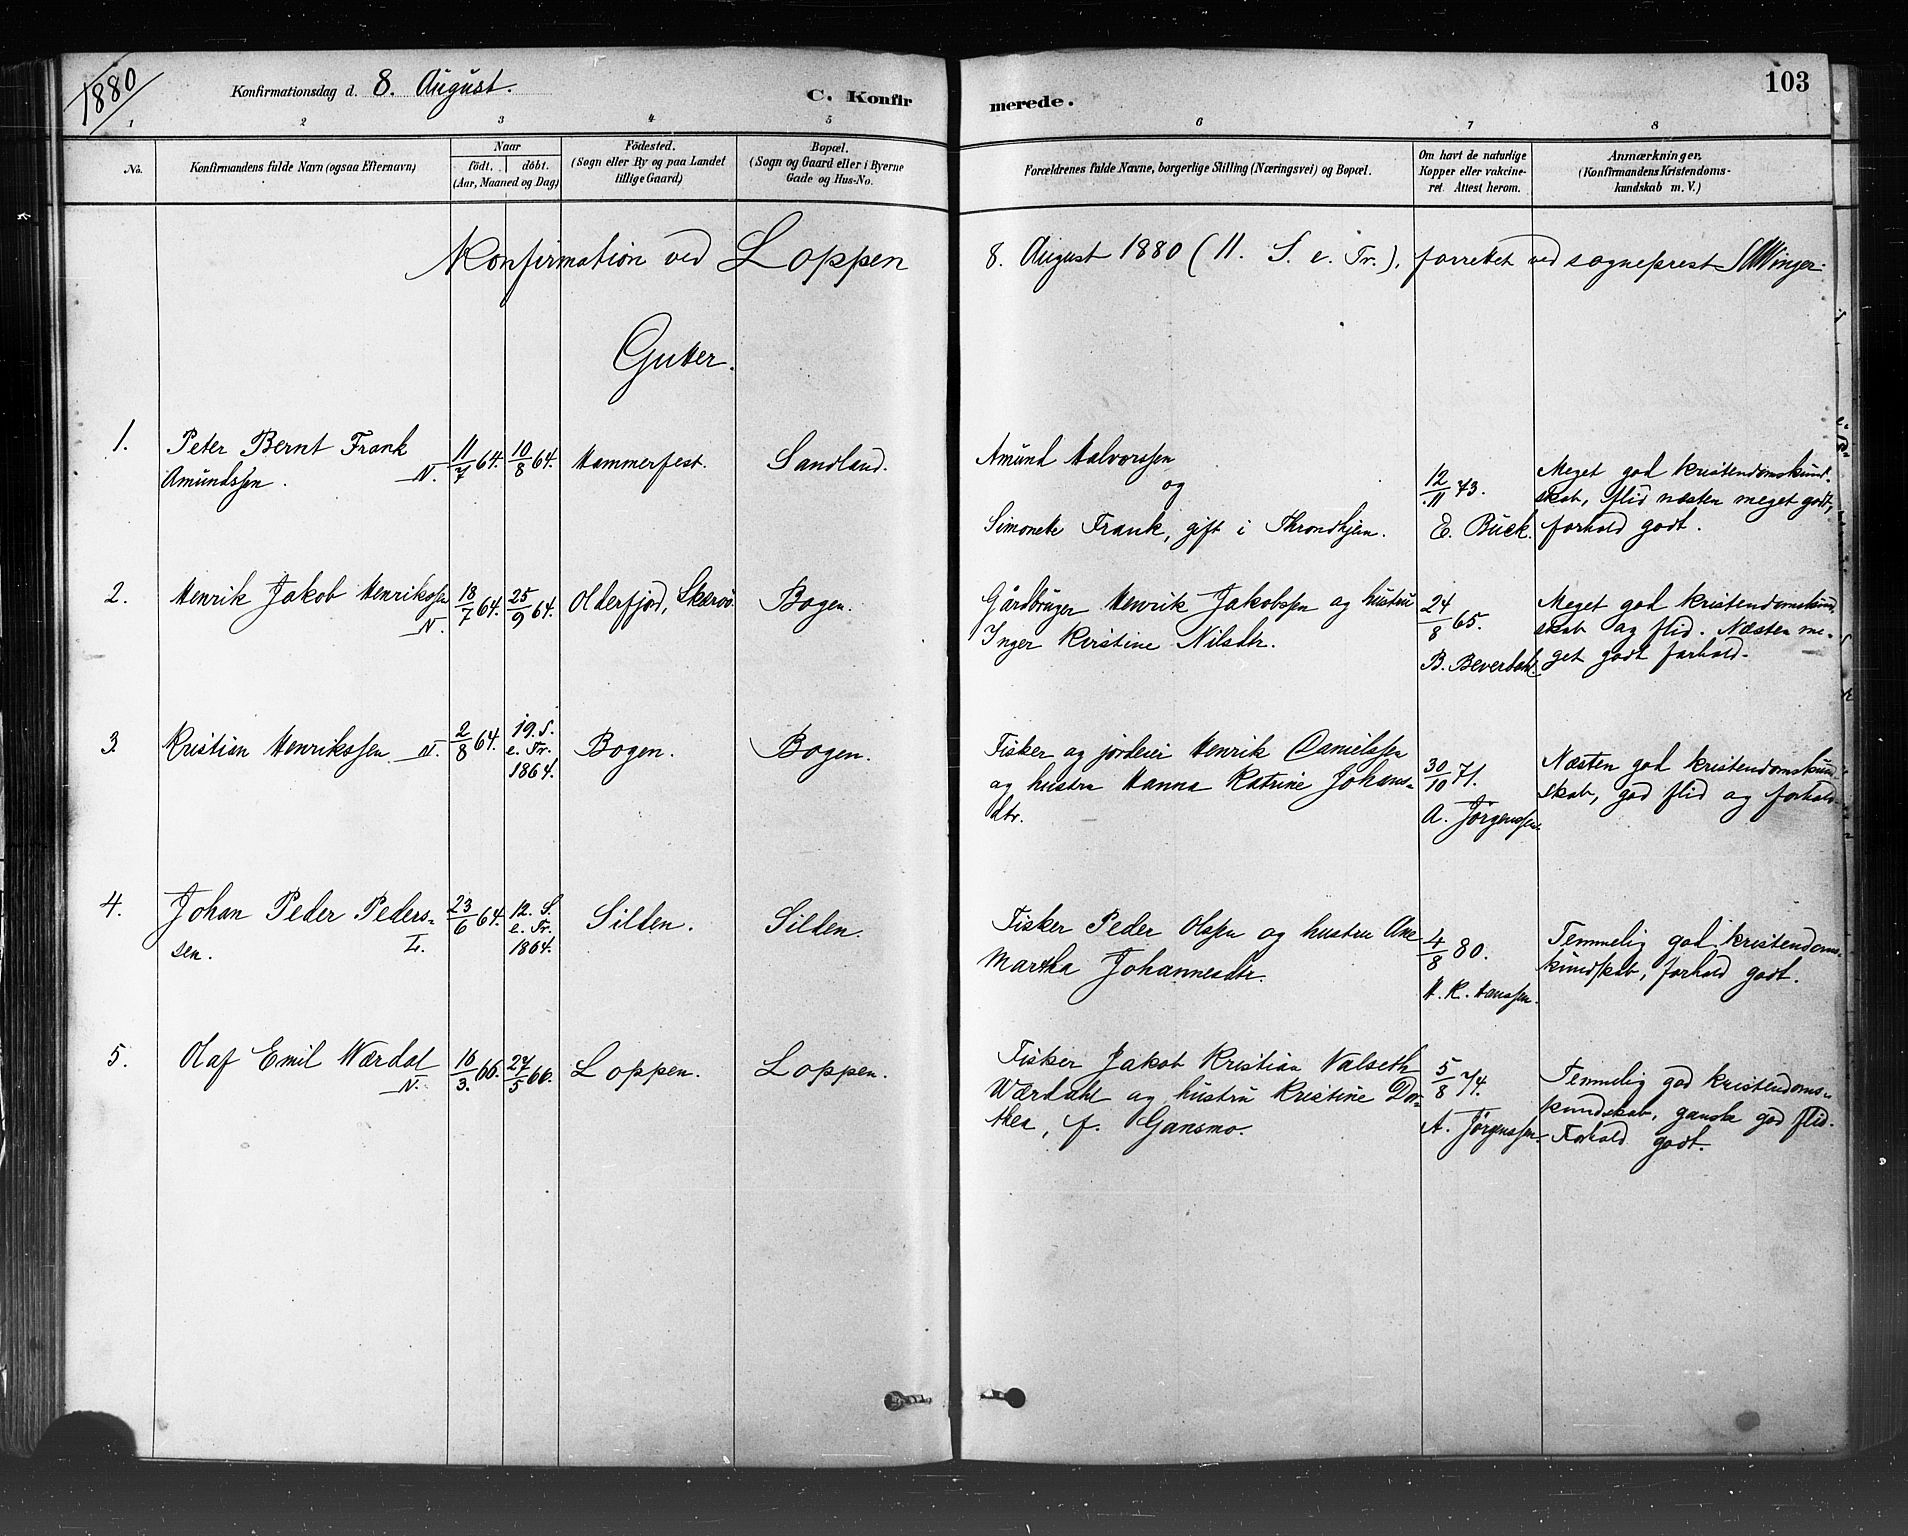 1880
Konfirmationsdag d. 8. August.
C. Konfirmerede.
103
1 2 3 4 5 6 7 8
No.
Konfirmandens fulde Navn (ogsaa Efternavn)
Naar
födt. döbt.
(Aar, Maaned og Dag)
Födested.
(Sogn eller By og paa Landet
tillige Gaard)
Bopæl.
(Sogn og Gaard eller i Byerne
Gade og Hus-No.
Forældrenes fulde Navne, borgerlige Stilling (Næringsvei) og Bopæl.
Om havt de naturlige
Kopper eller vakcine-
ret. Attest herom.
Anmærkninger.
(Konfirmandens Kristendoms-
kundskab m. V.)
Konfirmation ved Loppen 8. August 1880 (11. S. e. Tr.), forrettet ved sogneprest Winger.
Gutter.
1.
Peter Bernt Frank
Amundssen. N.
11/7 64.
10/8 64.
Hammerfest.
Sandland.
Amund Halvorssen
og
Simonette Frank, gift i Throndhjem.
12/11 73.
E. Buck.
Meget god kristendomskund-
skab, flid næsten meget godt,
forhold godt.
2.
Henrik Jakob Henrikssen
N.
18/7 64.
25/9 64.
Olderfjord, Skjervø.
Bogen.
Gårdbruger Henrik Jakobssen og hustru
Inger Kirstine Nilsdtr.
24/8 65.
B. Beverdahl.
Meget god kristendomskund-
skab og flid. Næsten me-
get godt forhold.
3.
Kristian Henrikssen. N.
2/8 64.
19. S.
e. Tr.
1864.
Bogen.
Bogen.
Fisker og jordeier Henrik Danielssen
og hustru Hanna Katrine Johans-
dtr.
30/10 71.
A. Jörgenssen.
Næsten god kristendomskund-
skab, god flid og forhold.
4.
Johan Peder Peders-
sen. L.
23/6 64.
12. S.
e. Tr.
1864.
Silden.
Silden.
Fisker Peder Olssen og hustru Ane
Martha Johannesdtr.
4/8 80.
H. K. Hanssen.
Temmelig god kristendoms-
kundskab, forhold godt.
5.
Olaf Emil Værdal
N.
16/3. 66.
27/5 66.
Loppen.
Loppen.
Fisker Jakob Kristian Valseth
Værdahl og hustru Kristine Dor-
thea, f. Gansmo.
5/8 74.
A. Jörgenssen.
Temmelig god kristendoms-
kundskab, ganske god flid.
Forhold godt.